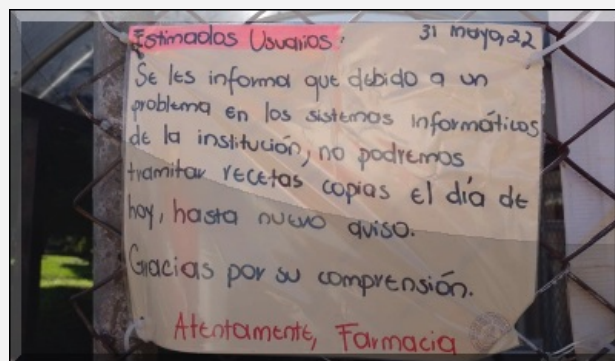 Estimados Usuarios: 31 mayo, 22
Se les informa que debido a un
problema en los sistemas informáticos
de la institución, no podremos
tramitar recetas copias el día de
hoy, hasta nuevo aviso.
Gracias por su comprensión.
Atentamente, Farmacia